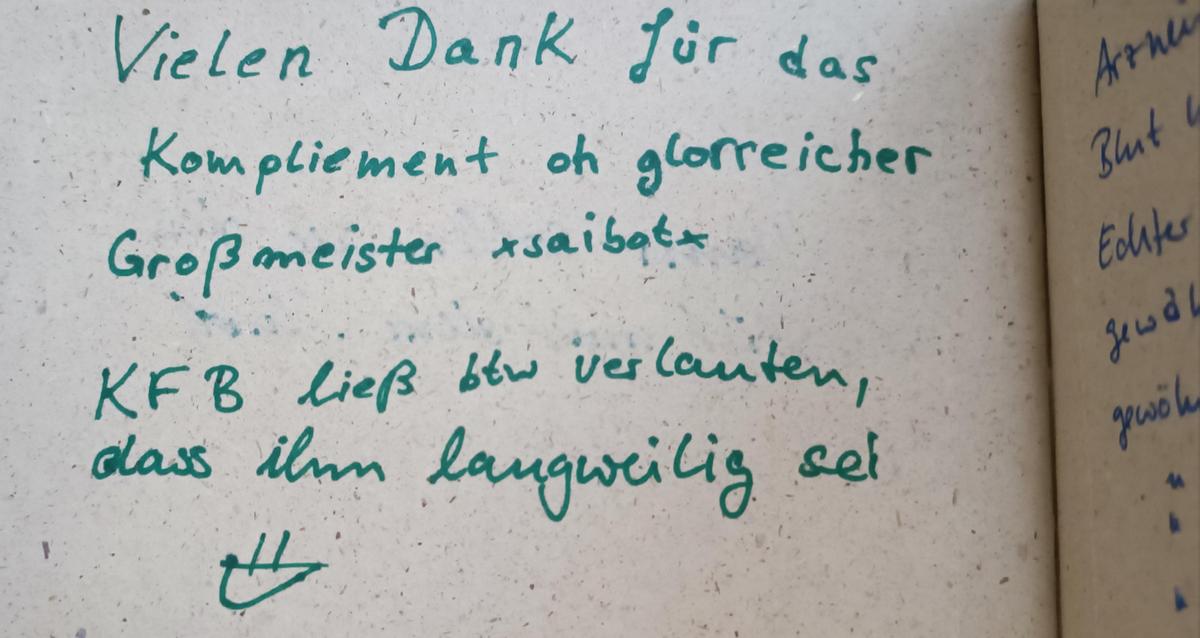 Vielen Dank für das
Kompliement oh glorreicher
Großmeister xsaibotx
KFB ließ btw verlauten,
dass ihm langweilig sei
Arznei
Blut
Echter
gewöh
gewöhn